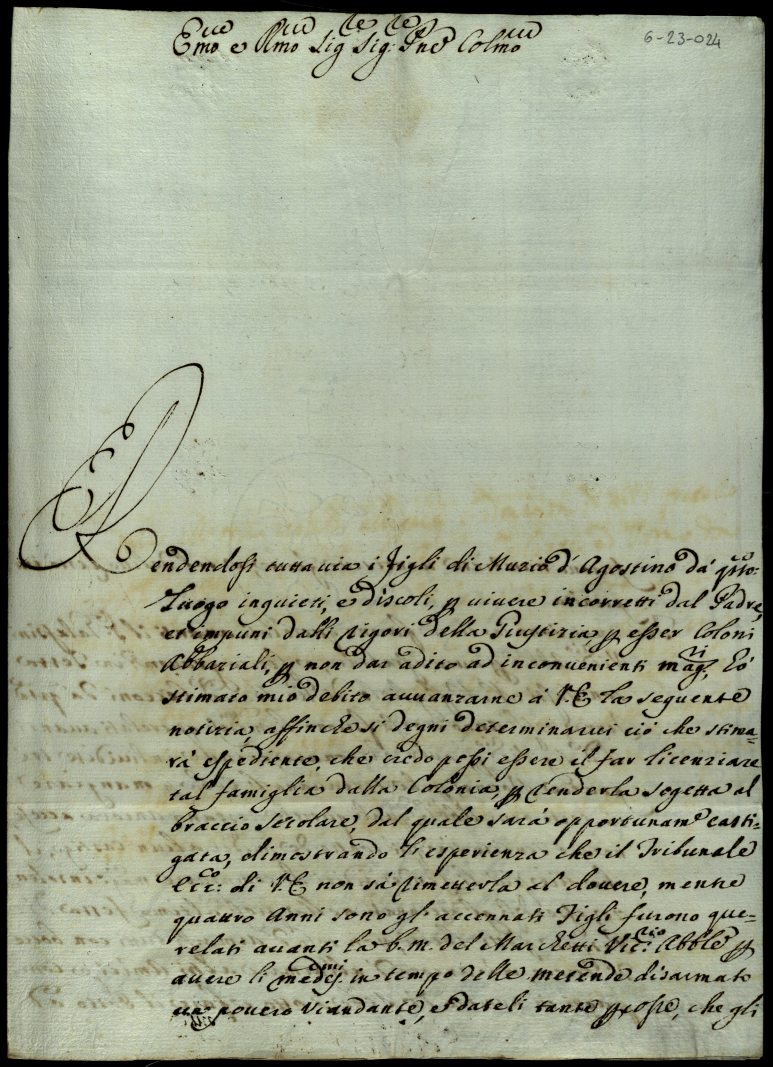 Emo e Rmo Sig Sig. Pne Colmo
6-23-024
Rendendosi tuttavia i Figli di Muzio d'Agostino da qsto:
Luogo inquieti, e discoli, p vivere incorretti dal Padre,
et impuni dalli rigori della Giustizia, p esser Coloni
Abbaziali, p non dar adito ad inconvenienti magri, hò
stimato mio debito avvanzarne à V.E. la seguente
notizia, affinche si degni determinarci ciò che stima-
rà espediente, che credo possi essere il far licenziare
tal famiglia dalla Colonia, p renderla sogetta al
braccio secolare, dal quale sarà opportunamte casti-
gata, dimostrando l'esperienza che il Tribunale
Ecc:co di V.E. non sà rimetterla al dovere, mentre
quattro Anni sono gl'accennati Figli furono que-
relati avanti la b.m. del Marchetti Vic:rio Abble p
avere li medemi in tempo delle merende disarmato
un povero Viandante, e dateli tante pcosse, che gli